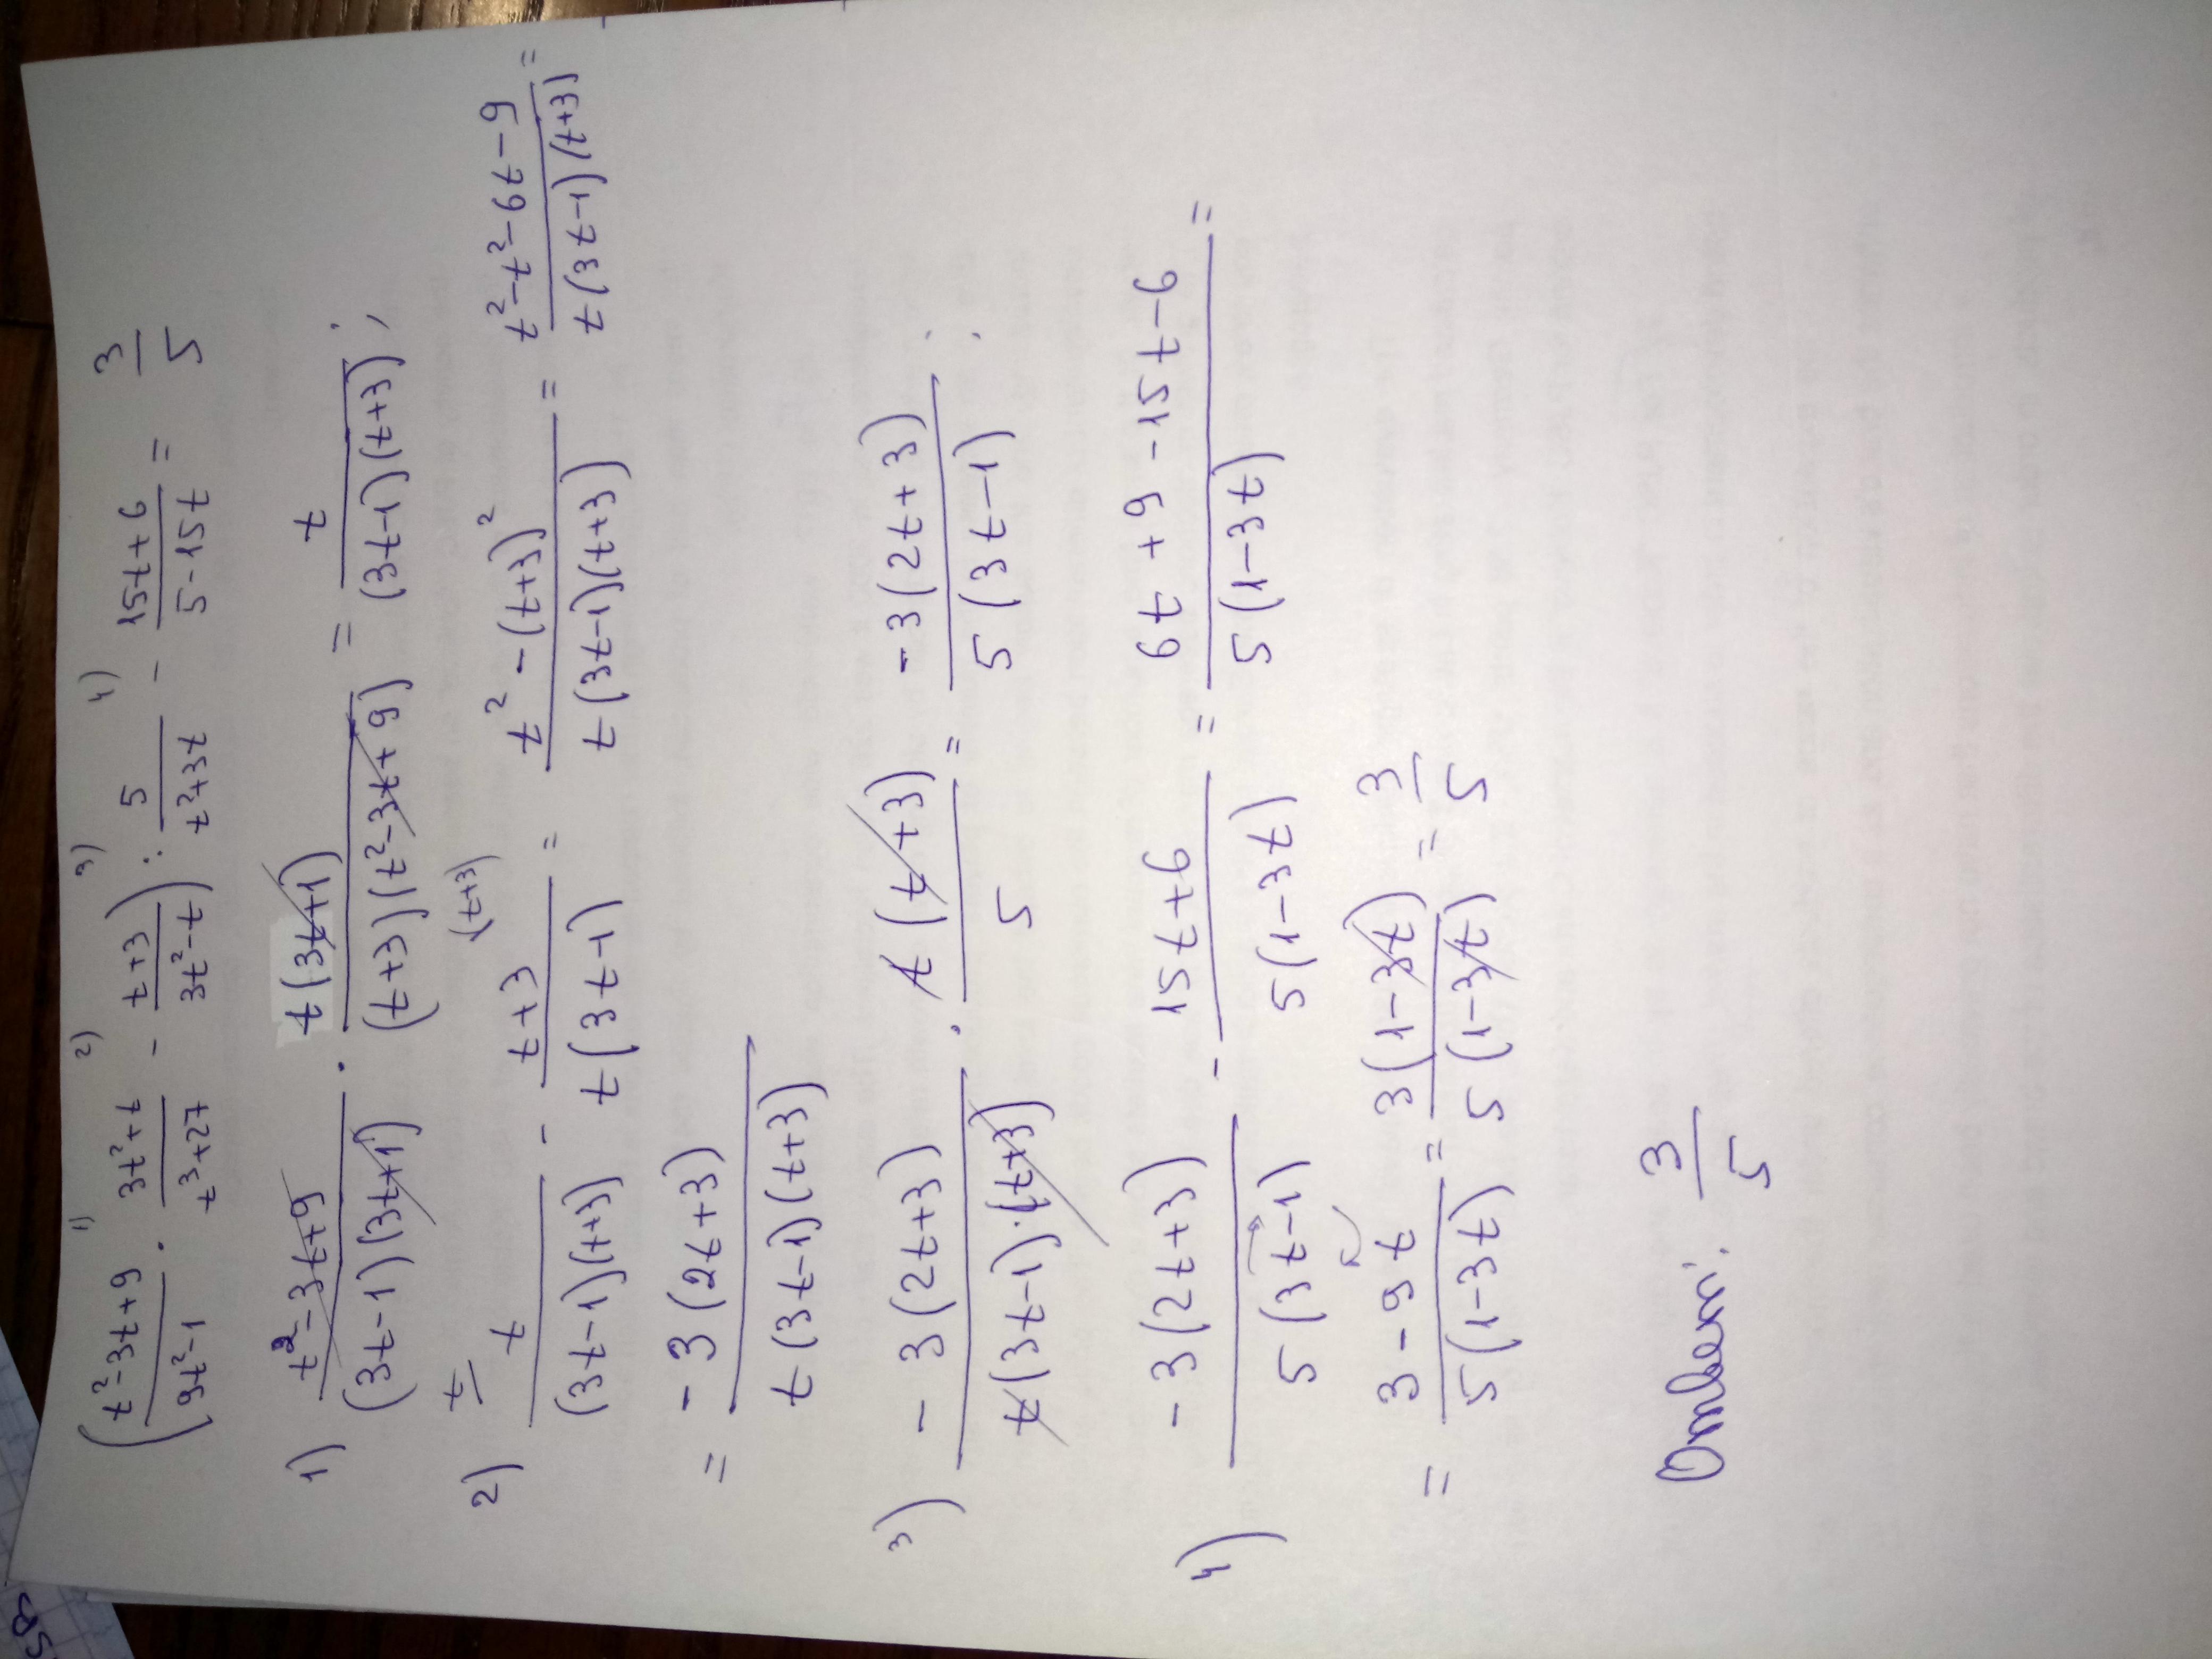 1) 2) 3) 4)
( (t²-3t+9)/(9t²-1) · (3t²+t)/(t³+27) - (t+3)/(3t²-t) ) : 5/(t²+3t) - (15t+6)/(5-15t) = 3/5
1) (t²-3t+9)/((3t-1)(3t+1)) · t(3t+1)/((t+3)(t²-3t+9)) = t/((3t-1)(t+3)) ;
2) t/ t/((3t-1)(t+3)) - (t+3)/(t(3t-1)) (t+3) = (t²-(t+3)²)/(t(3t-1)(t+3)) = (t²-t²-6t-9)/(t(3t-1)(t+3)) =
= -3(2t+3)/(t(3t-1)(t+3))
3) -3(2t+3)/(t(3t-1)·(t+3)) · t(t+3)/5 = -3(2t+3)/(5(3t-1)) ;
4) -3(2t+3)/(5(3t-1)) - (15t+6)/(5(1-3t)) = (6t+9-15t-6)/(5(1-3t)) =
= (3-9t)/(5(1-3t)) = 3(1-3t)/(5(1-3t)) = 3/5
Ответ: 3/5